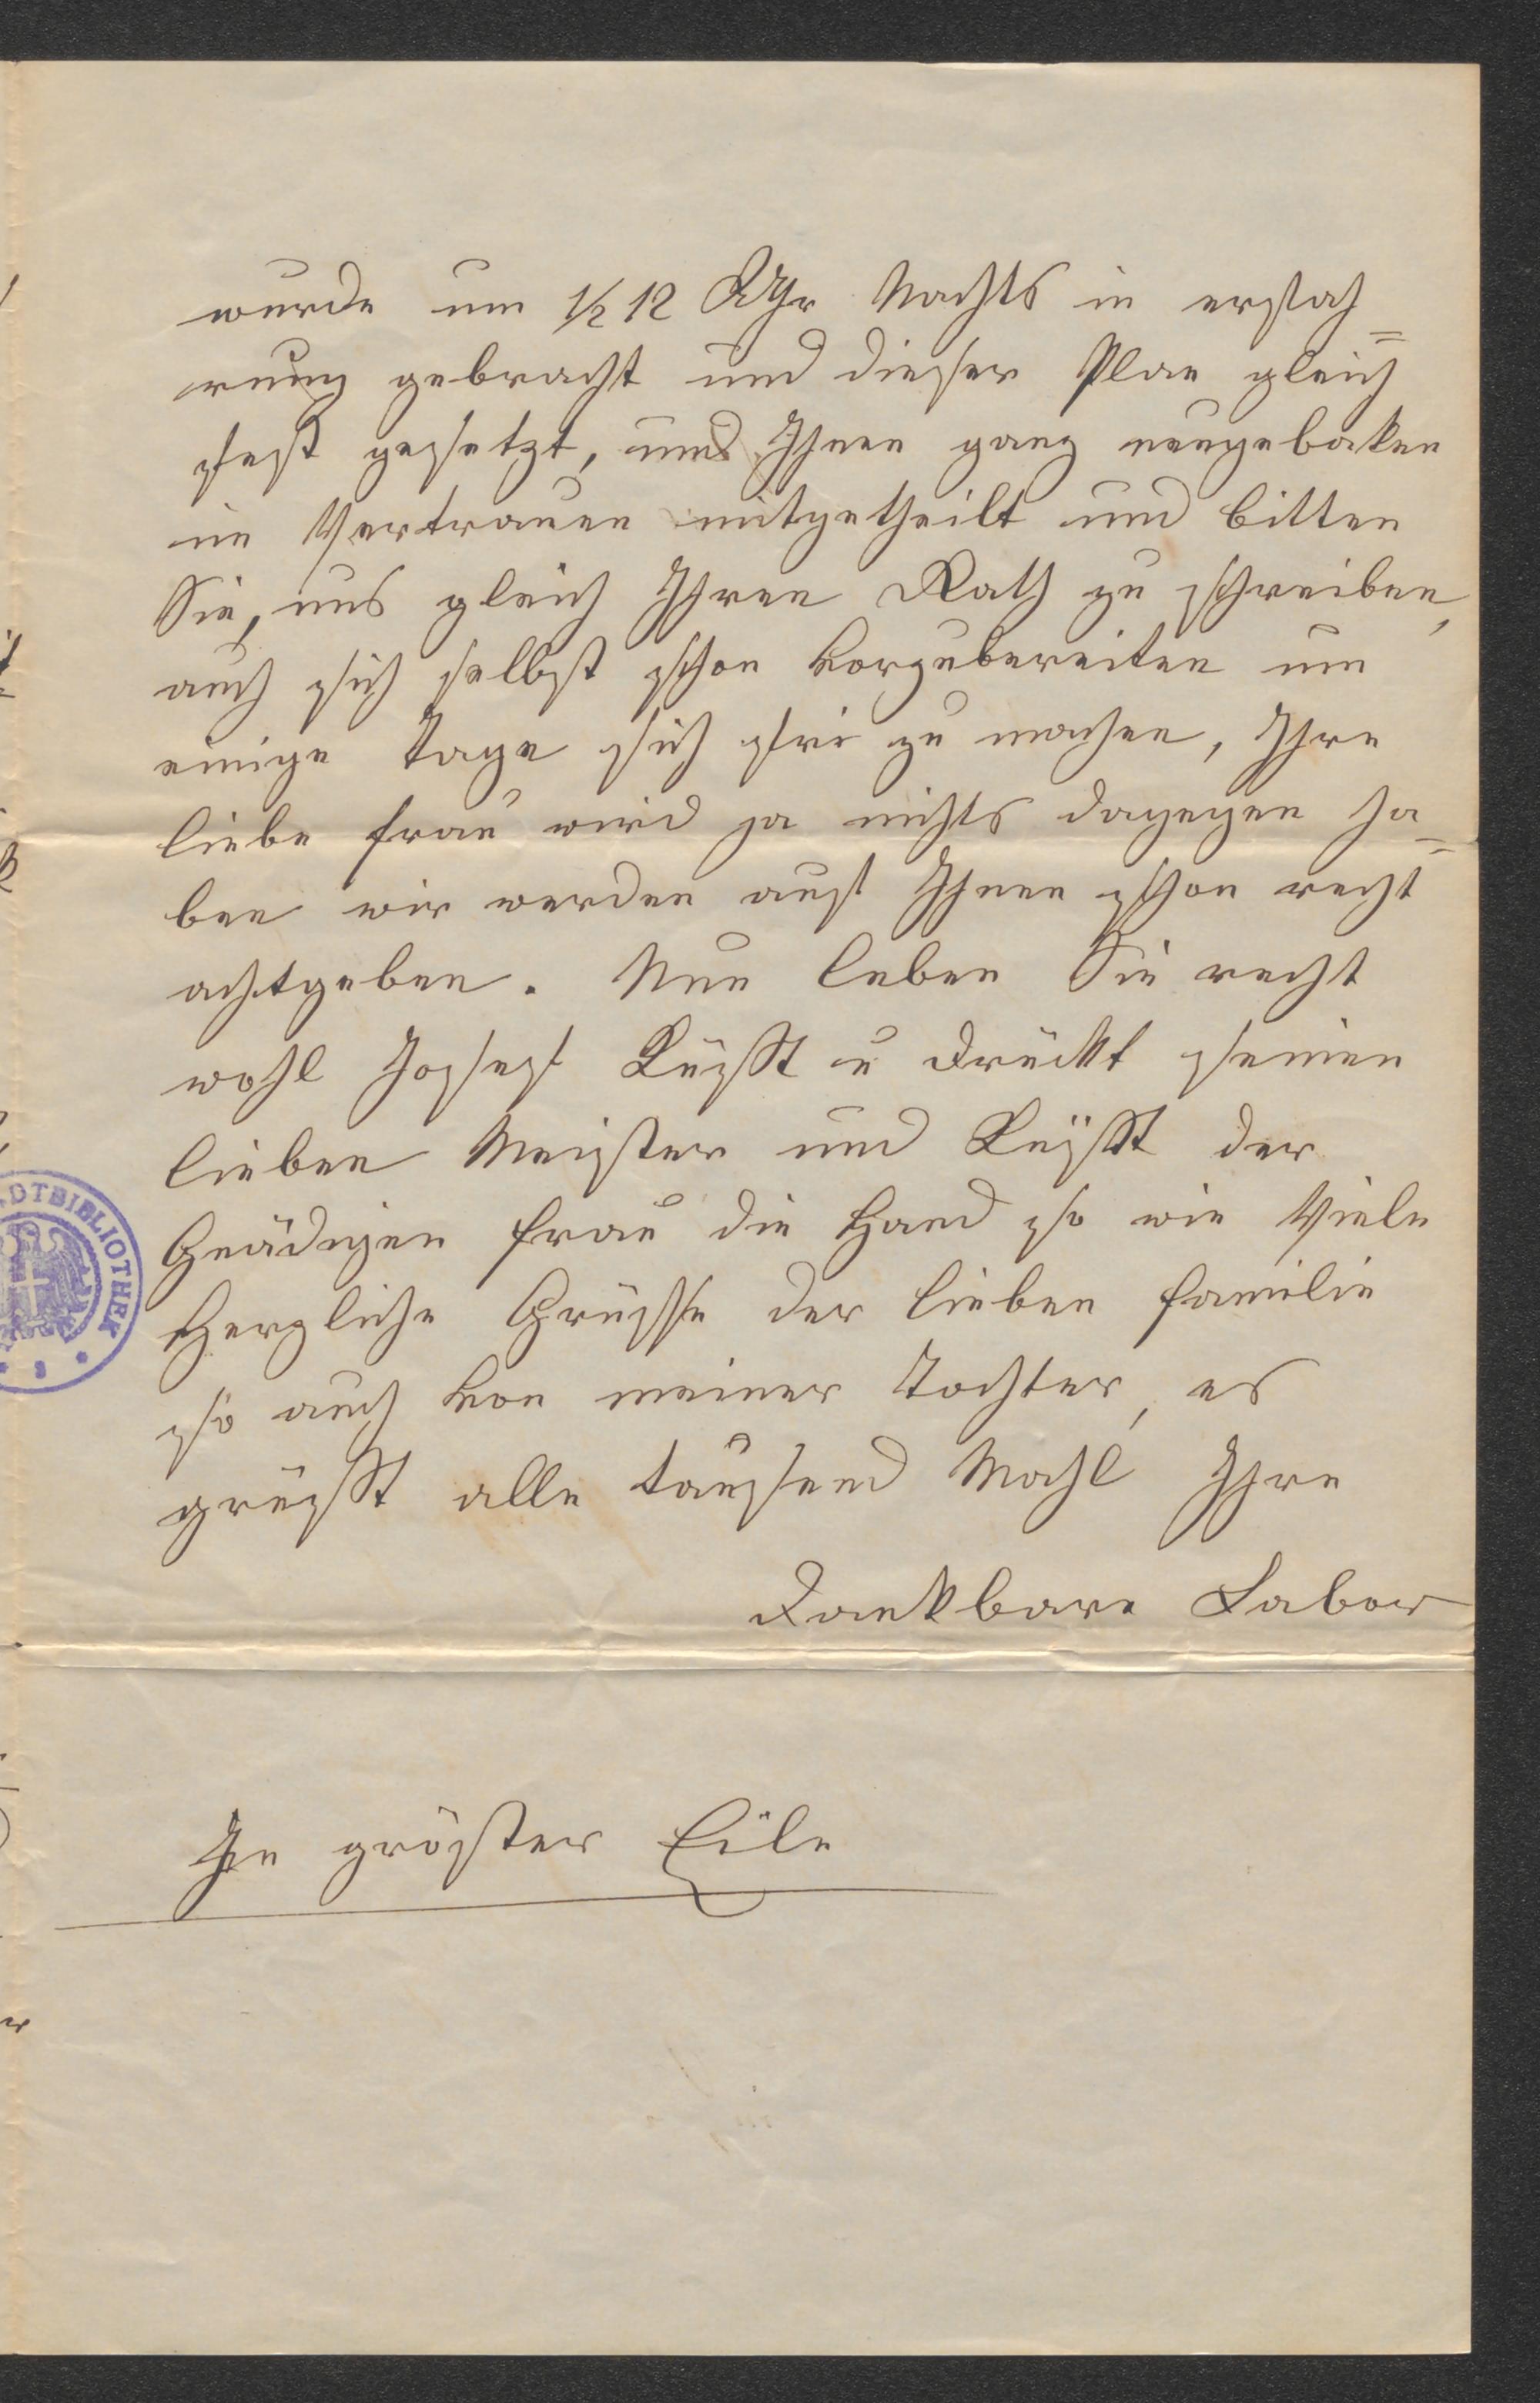 wurde um 1/2 12 Uhr Nachts in erfah=
rung gebracht und dieser Plan gleich
fest gesetzt, und Ihnen ganz neugebaken
im Vertrauen mitgetheilt und bitten
Sie, uns gleich Ihren Rath zu schreiben,
auch sich selbst schon vorzubereiten um
einige Tage sich frei zu machen, Ihre
liebe Frau wird ja nichts dagegen ha=
ben wir werden auf Ihnen schon recht
achtgeben. Nun leben Sie recht
wohl Josef Küsst u drückt seinen
lieben Meister und Küsst der
Gnädigen Frau die Hand so wie Viele
Herzliche Grüsse der lieben Familie
so auch von meiner Tochter, es
grüsst alle tausend Mahl Ihre
Dankbare Labor
In gröster Eile
DTBIBLIOTHEK